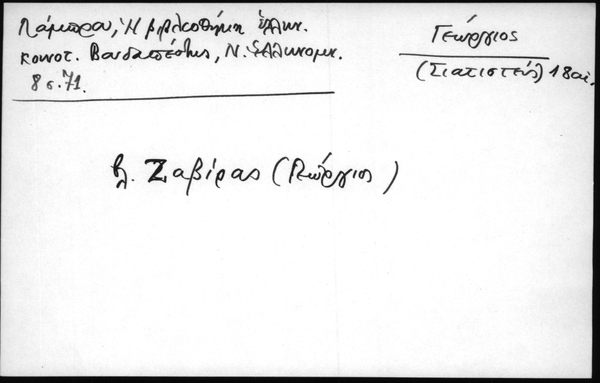 Λάμπρου, Ἡ βιβλιοθήκη ἑλλην.
κοινοτ. Βουδαπέστης, Ν. Ἑλληνομν.
8 σ. 71.
Γεώργιος
(Σιατιστεύς) 18 αἰ.
βλ. Ζαβίρας (Γεώργιος)